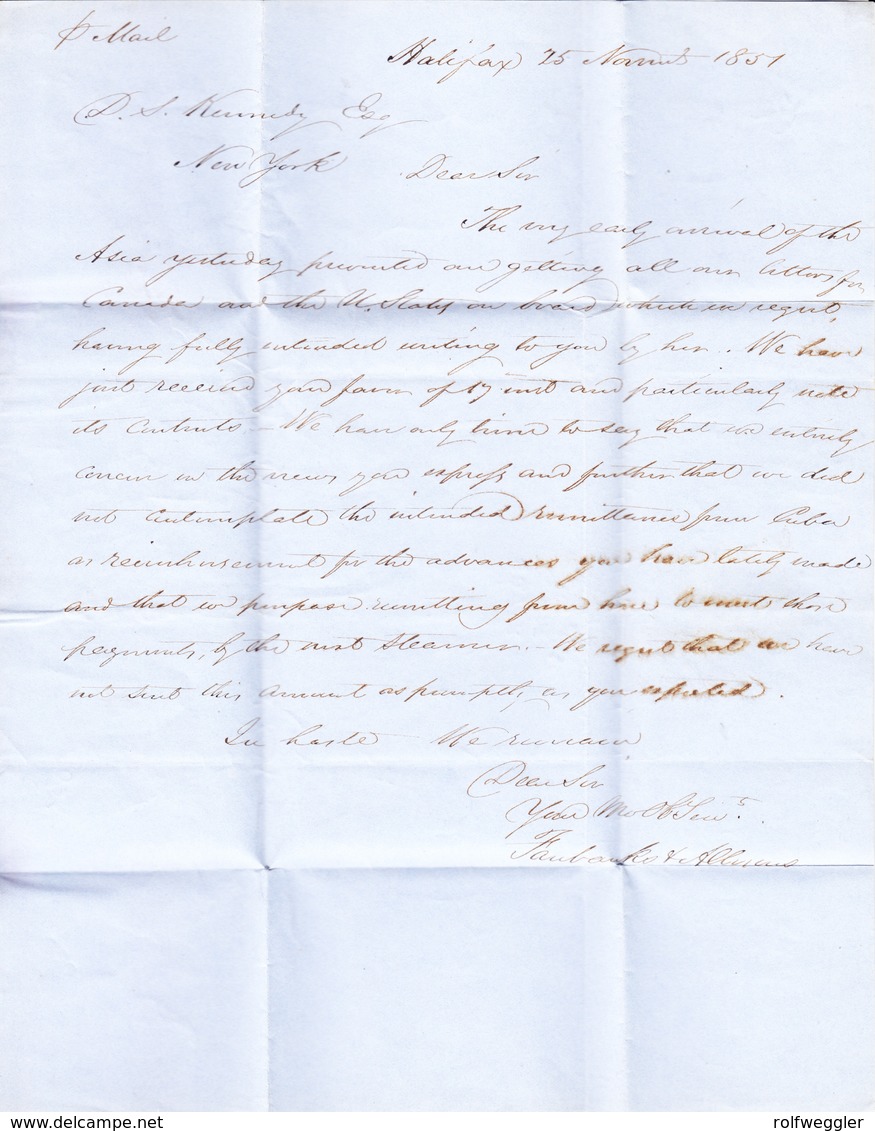 p Mail
Halifax 25 Novemb 1851
D. S. Kennedy Esq
New York
Dear Sir
The very early arrival of the
Asia yesterday prevented our getting all our letters for
Canada and the U. States on board, which we regret,
having fully intended writing to you by her. We have
just received your favor of 17 inst and particularly note
its contents - We have only time to say that we entirely
concur in the views you express and further that we did
not contemplate the intended remittances from Cuba
as reimbursement for the advances you have lately made
and that we purpose remitting from here to meet those
payments, by the next steamer. - We regret that we have
not sent this amount as promptly as you expected.
In haste We remain
Dear Sir
Your Mo Ob Servts.
Fairbanks & Allisons
www.delcampe.net
rolfweggler